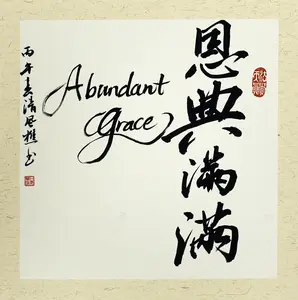 恩典满满
Abundant
Grace
丙午春清
书